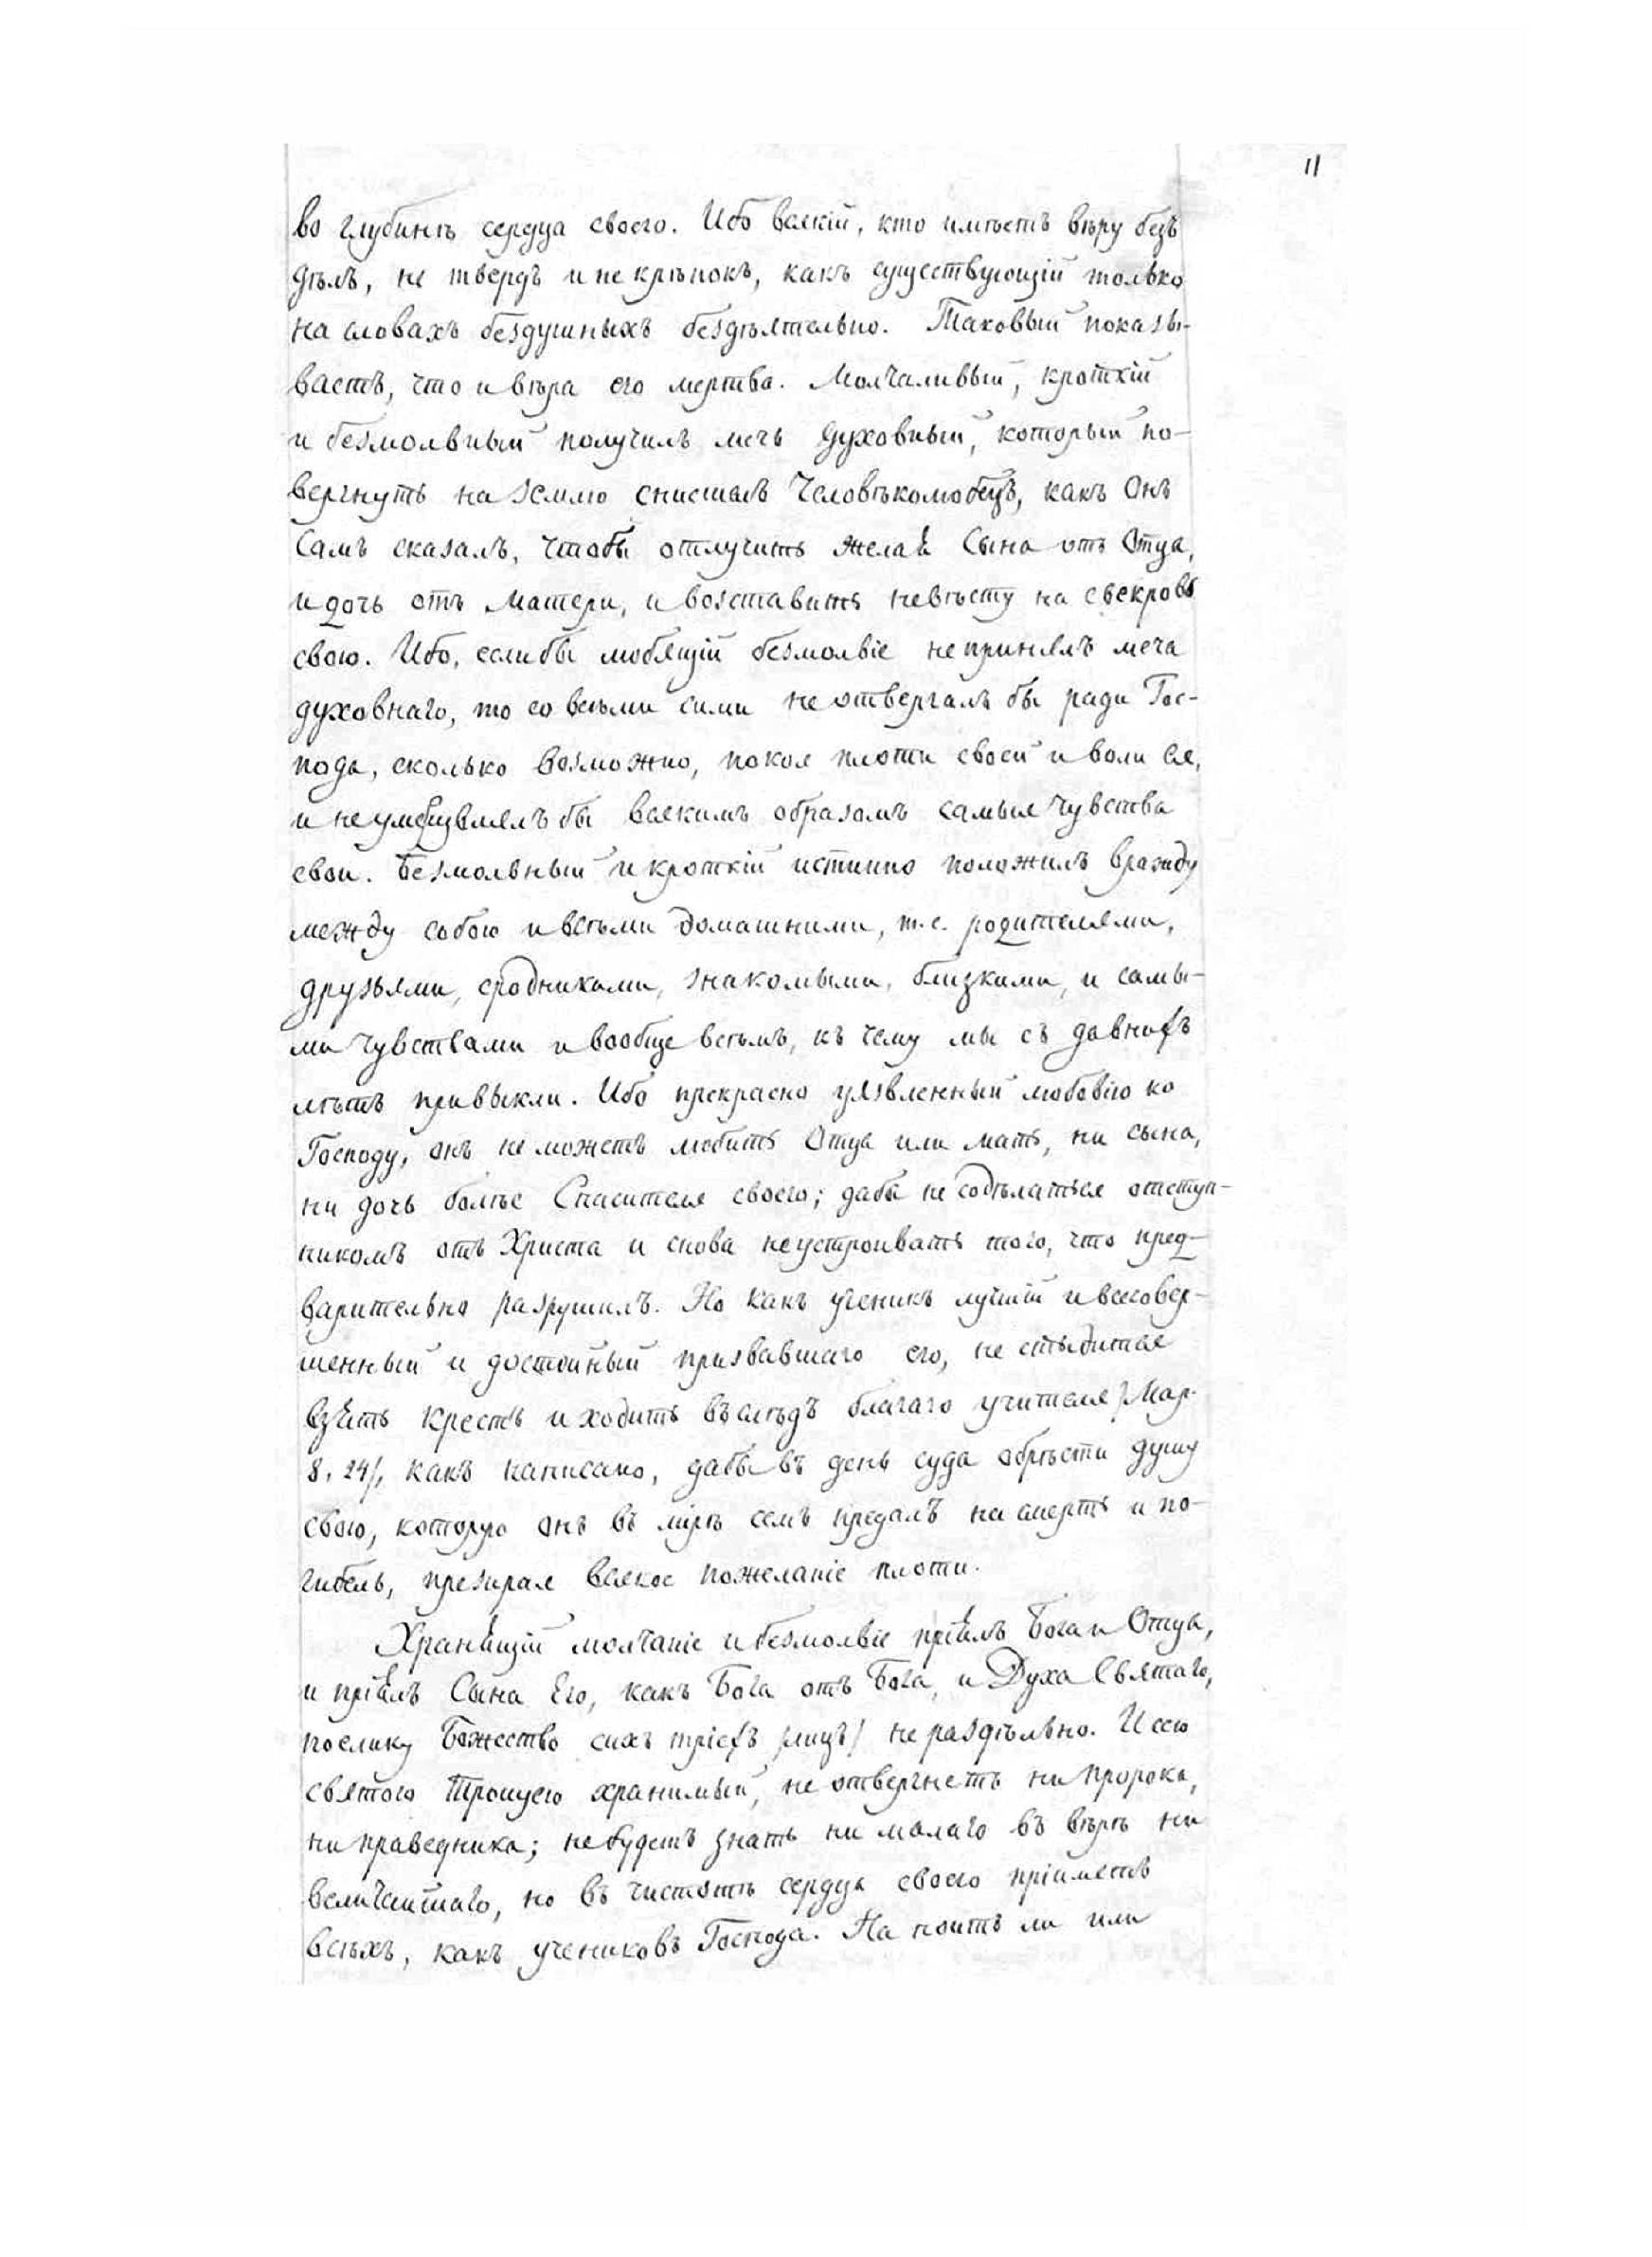 11
во глубинѣ сердца своего. Ибо всякій, кто имѣетъ вѣру безъ
дѣлъ, не твердъ и не крѣпокъ, какъ существующій только
на словахъ бездушныхъ бездѣятельно. Таковый показы-
ваетъ, что и вѣра его мертва. Молчаливый, кроткій
и безмолвный получилъ мечь духовный, который по-
вергнуть на землю снисшелъ Человѣколюбецъ, какъ Онъ
Самъ сказалъ, чтобы отлучить желая Сына отъ Отца,
и дочь отъ Матери, и возставить невѣсту на свекровь
свою. Ибо, если бы любящій безмолвіе не принялъ меча
духовнаго, то со всѣми сими не отвергалъ бы ради Гос-
пода, сколько возможно, покоя плоти своей и воли ея,
и не умерщвлялъ бы всякимъ образомъ самыя чувства
свои. Безмолвный и кроткій истинно положилъ вражду
между собою и всѣми домашними, т.е. родителями,
друзьями, сродниками, знакомыми, близкими, и самы-
ми чувствами и вообще всѣмъ, къ чему мы съ давнихъ
лѣтъ привыкли. Ибо прекрасно уязвленный любовію ко
Господу, онъ не можетъ любить Отца или мать, ни сына,
ни дочь болѣе Спасителя своего; дабы не содѣлаться отступ-
никомъ отъ Христа и снова не устроивать того, что пред-
варительно разрушилъ. Но какъ ученикъ лучшій и всесовер-
шенный и достойный призвавшаго его, не стыдится
взять крестъ и ходить въ слѣдъ благаго учителя /Мар.
8, 24/, какъ написано, дабы въ день суда обрѣсти душу
свою, которую онъ въ мірѣ семъ предалъ на смерть и по-
гибель, презирая всякое пожеланіе плоти.
Хранящій молчаніе и безмолвіе пріялъ Бога и Отца,
и пріялъ Сына Его, какъ Бога отъ Бога, и Духа Святаго,
поелику Божество сихъ тріехъ /лицъ/ не раздѣльно. И сею
святою Троицею хранимый, не отвергнетъ ни пророка,
ни праведника; не будетъ знать ни малаго въ вѣрѣ ни
величайшаго, но въ чистотѣ сердца своего пріиметъ
всѣхъ, какъ учениковъ Господа. Напоитъ ли или